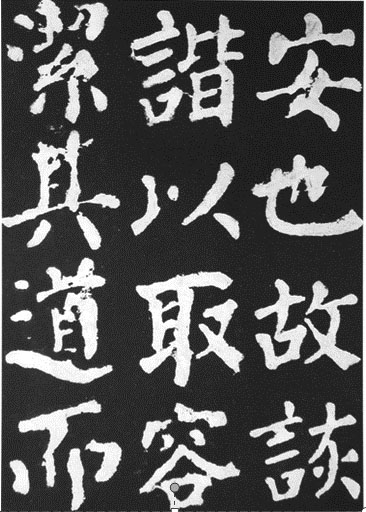 安也故詼
諧以取容
潔其道而